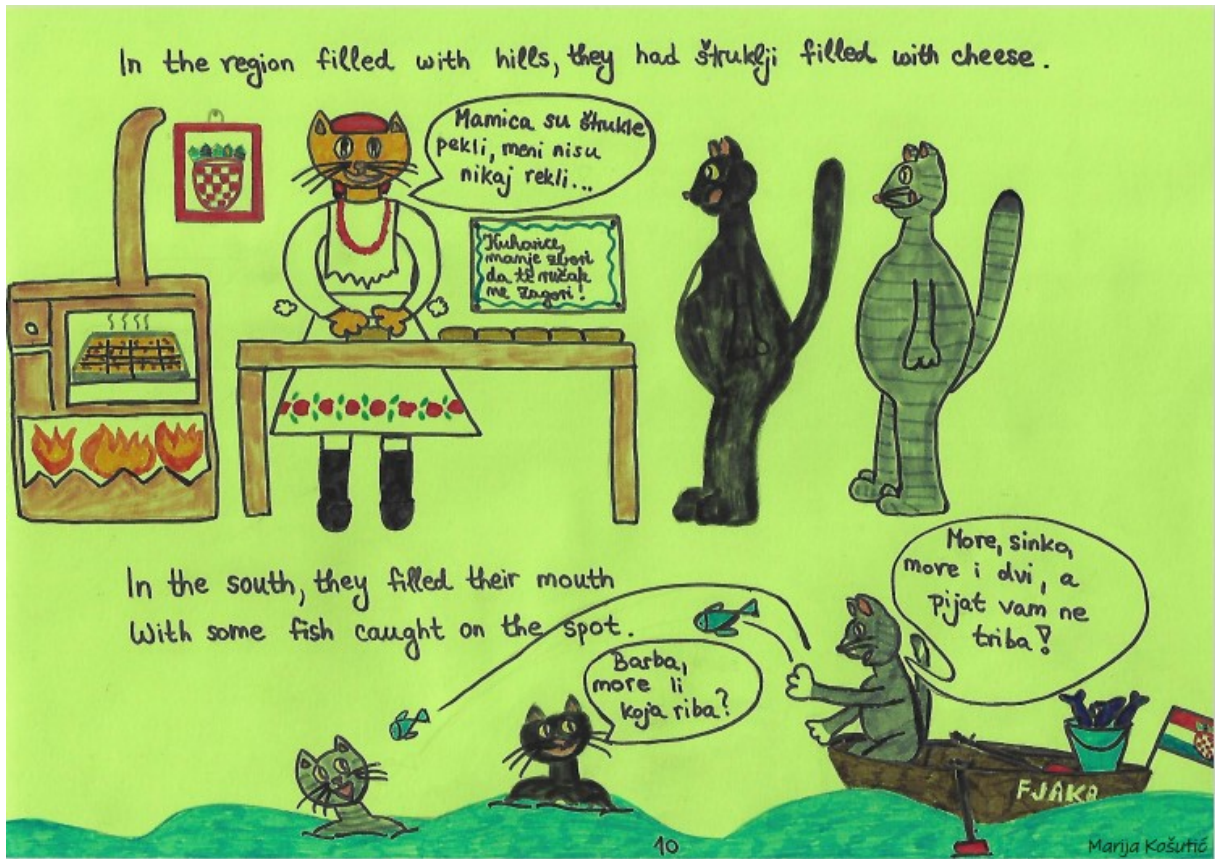 In the region filled with hills, they had štruklji filled with cheese.
Mamica su štrukle
pekli, meni nisu
nikaj rekli...
Kuharice,
manje zbori
da te ručak
ne zagori!
In the south, they filled their mouth
With some fish caught on the spot.
More, sinko,
more i dvi, a
pijat vam ne
triba!
Barba,
more li
koja riba?
FJAKA
10
Marija Košutić